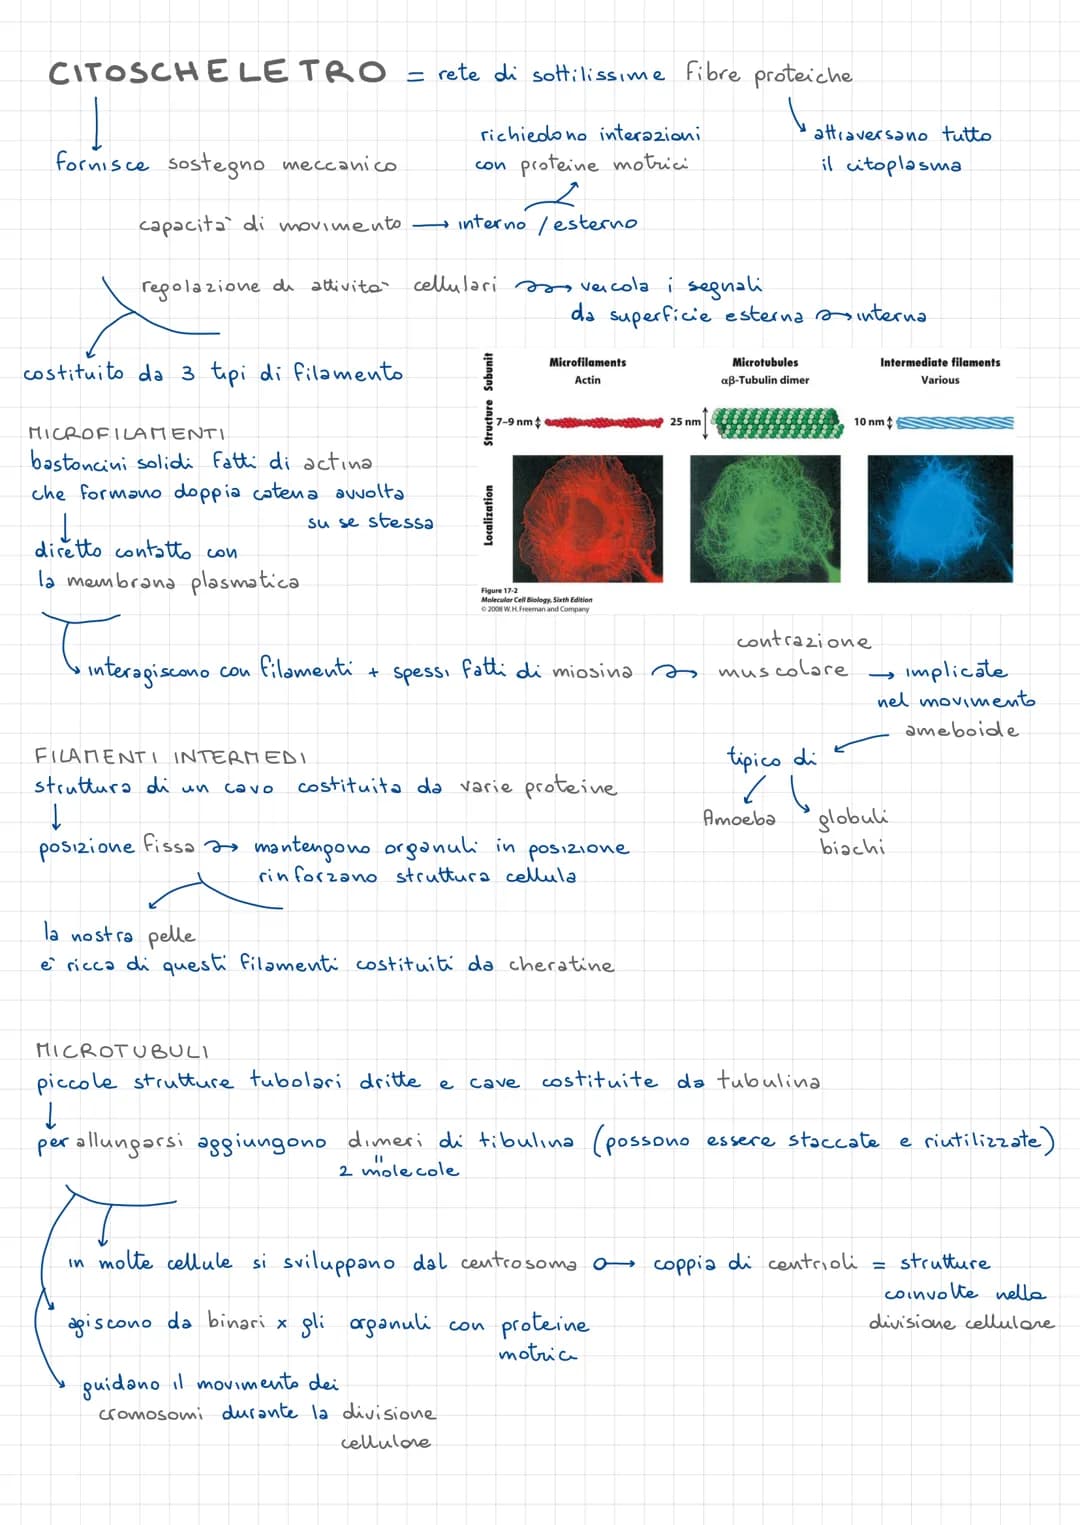 CITOSCHELETRO = rete di sottilissime fibre proteiche
attraversano tutto
il citoplasma
fornisce sostegno meccanico
richiedono interazioni
con proteine motrici
capacità di movimento → interno / esterno
regolazione di attività cellulari → veicola i segnali
da superficie esterna → interna
costituito da 3 tipi di filamento
Structure Subunit
Microfilaments
Actin
Microtubules
αβ-Tubulin dimer
Intermediate filaments
Various
7-9 nm
25 nm
10 nm
Localization
Figure 17-2
Molecular Cell Biology, Sixth Edition
© 2008 W. H. Freeman and Company
MICROFILAMENTI
bastoncini solidi fatti di actina
che formano doppia catena avvolta
su se stessa
↓
diretto contatto con
la membrana plasmatica
interagiscono con filamenti + spessi fatti di miosina →
contrazione
muscolare → implicate
nel movimento
ameboide
tipico di
Amoeba
globuli
biachi
FILAMENTI INTERMEDI
struttura di un cavo costituita da varie proteine
↓
posizione fissa → mantengono organuli in posizione
rinforzano struttura cellula
la nostra pelle
e' ricca di questi filamenti costituiti da cheratine
MICROTUBULI
piccole strutture tubolari dritte e cave costituite da tubulina
↓
per allungarsi aggiungono dimeri di tibulina (possono essere staccate e riutilizzate)
"
2 molecole
in molte cellule si sviluppano dal centrosoma → coppia di centrioli = strutture
coinvolte nella
divisione cellulare
agiscono da binari x gli organuli con proteine
motrici
guidano il movimento dei
cromosomi durante la divisione
cellulare